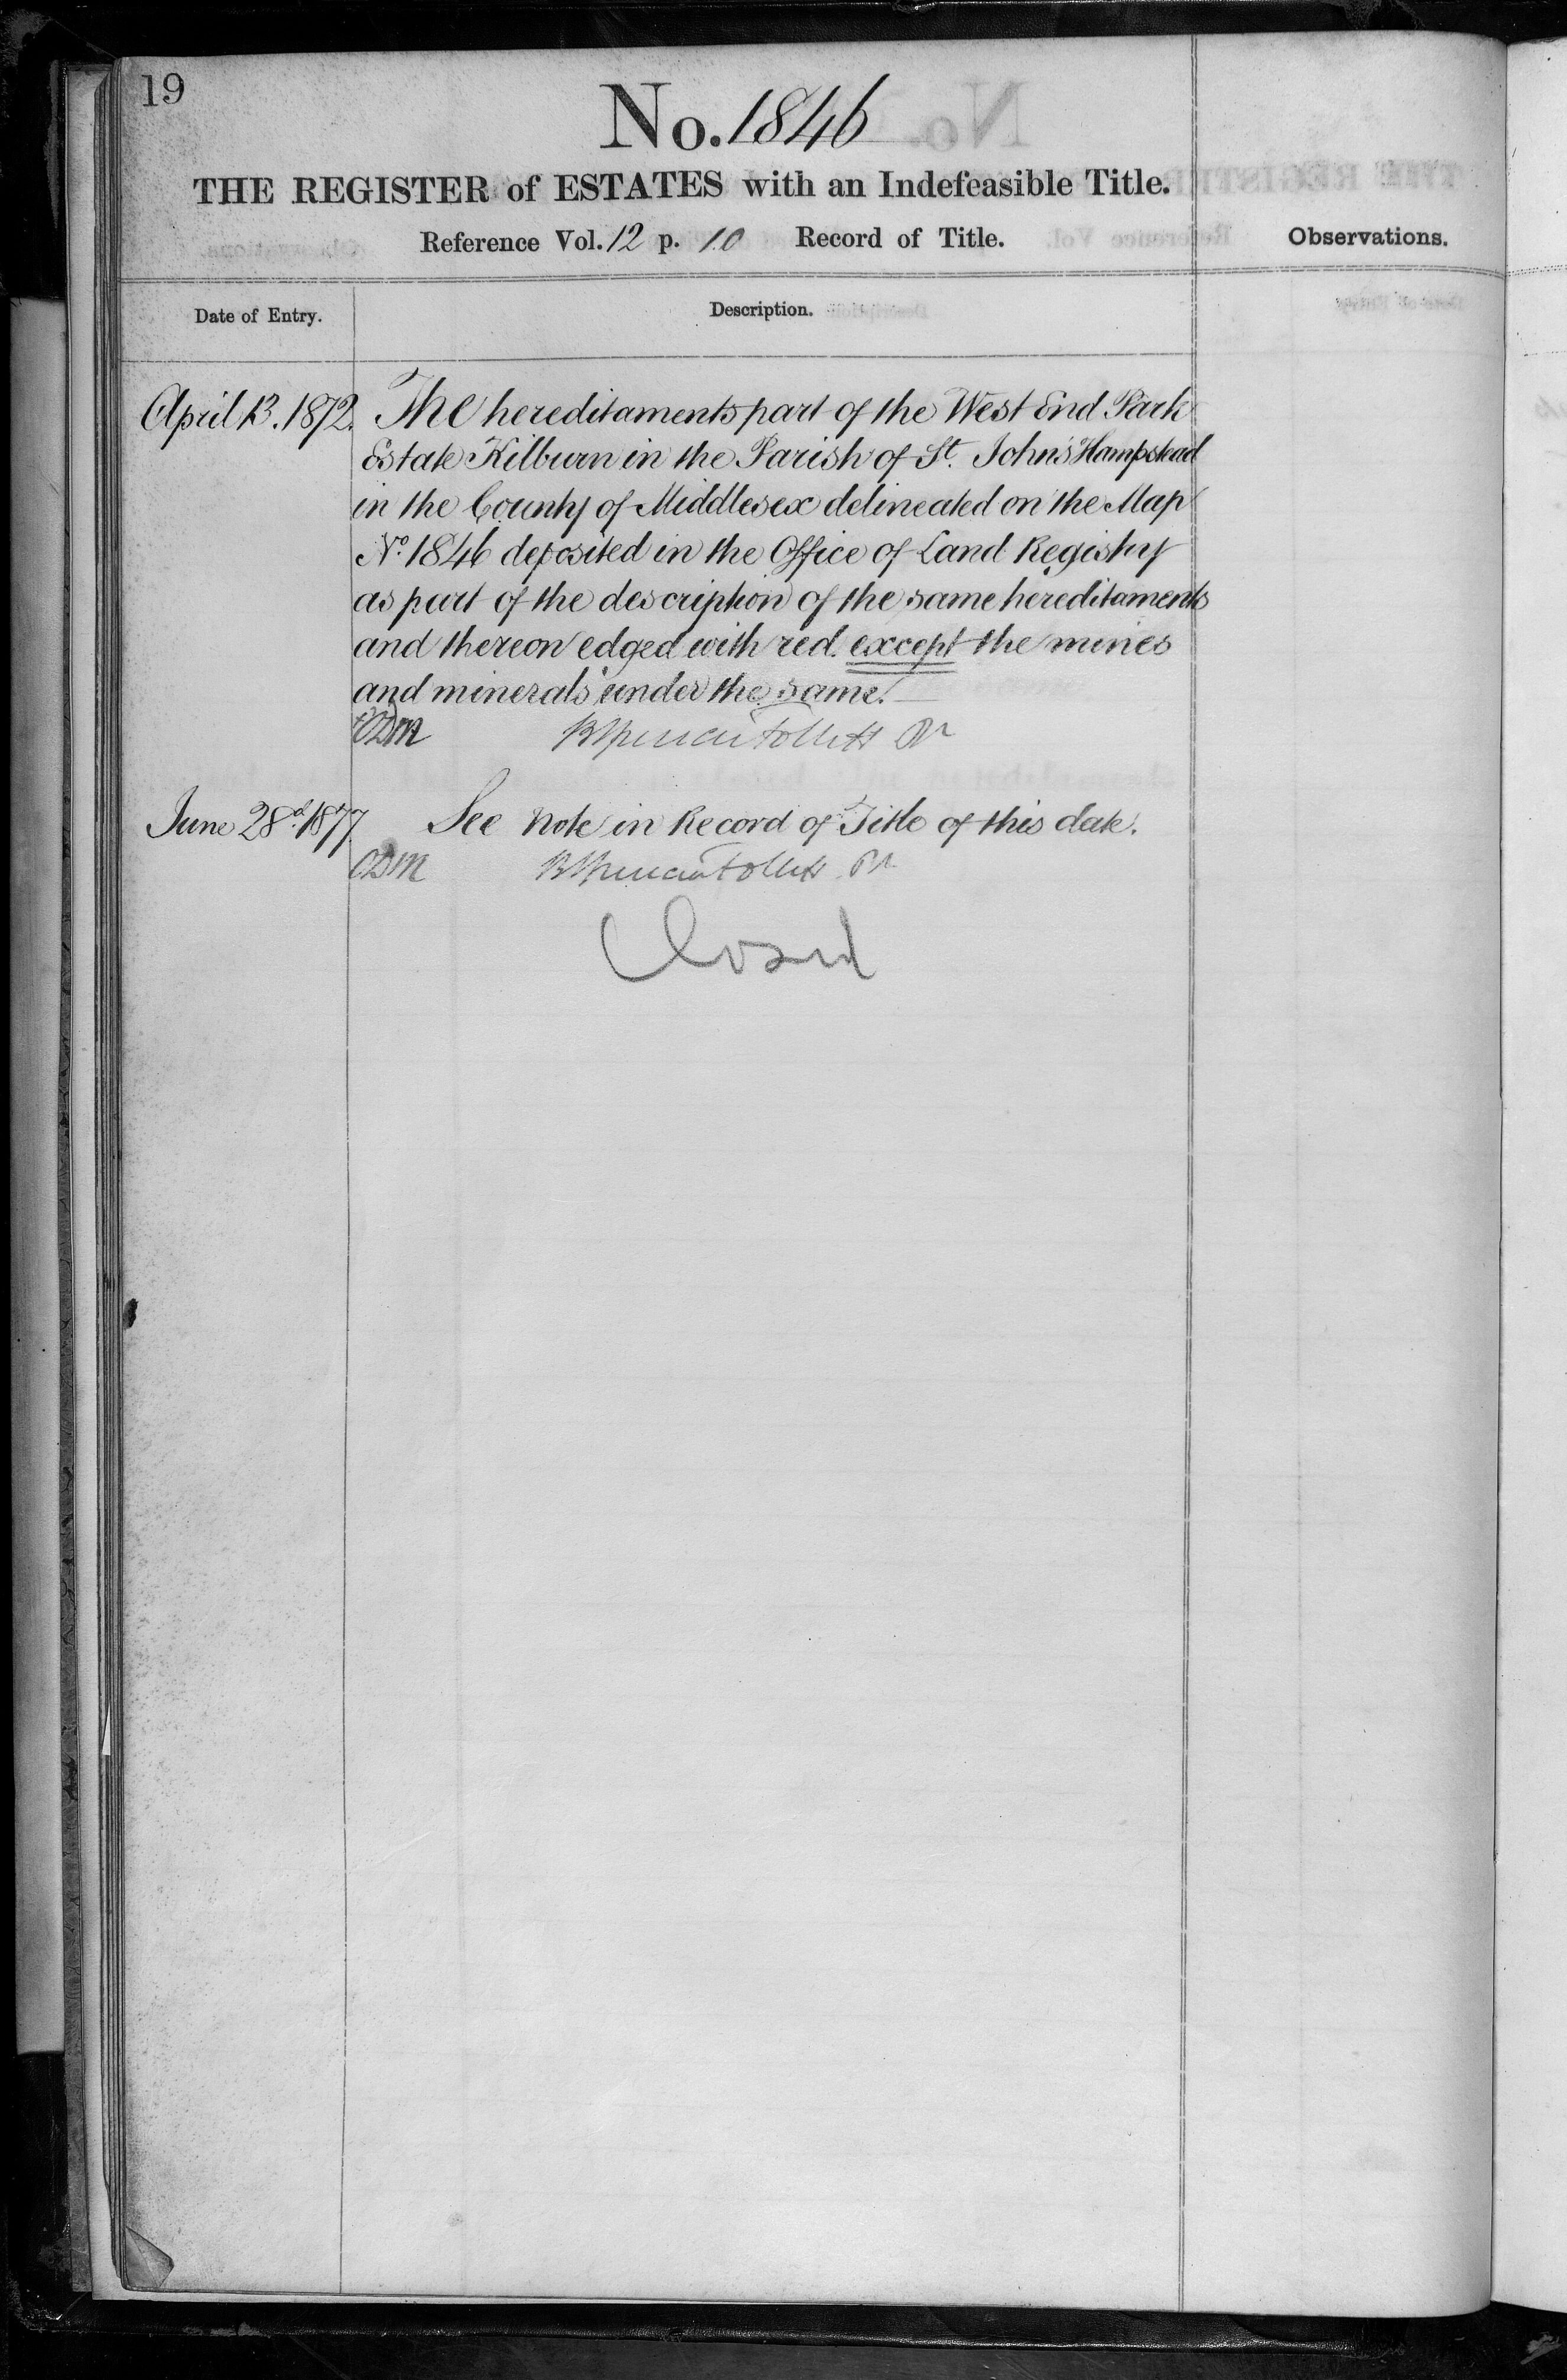 19
No. 1846
THE REGISTER of ESTATES with an Indefeasible Title.
Reference Vol. 12 p. 10 Record of Title.
Observations.
Date of Entry.
Description.
April 13. 1872. The hereditaments part of the West End Park
Estate Kilburn in the Parish of St. John's Hampstead
in the County of Middlesex delineated on the Map
No. 1846 deposited in the Office of Land Registry
as part of the description of the same hereditaments
and thereon edged with red. except the mines
and minerals under the same.
June 28th. 1877 See Note in Record of Title of this date.
Closed